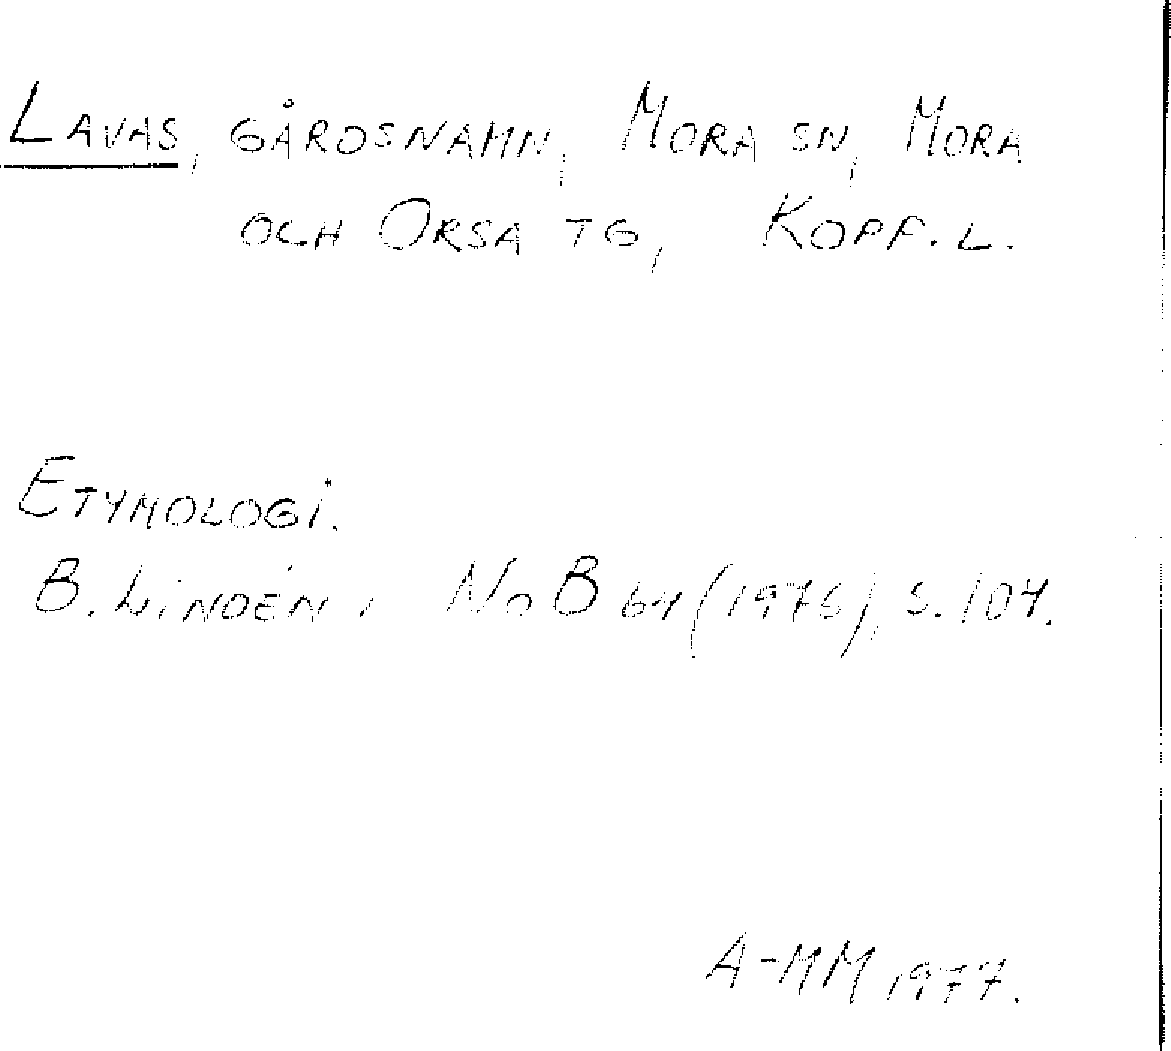 LAVAS, GÅRDSNAMN, MORA SN, MORA
OCH ORSA TG, KOPP. L.
ETYMOLOGI.
B. LINDÉN i NoB 64 (1976), S. 104.
A-MM 1977.